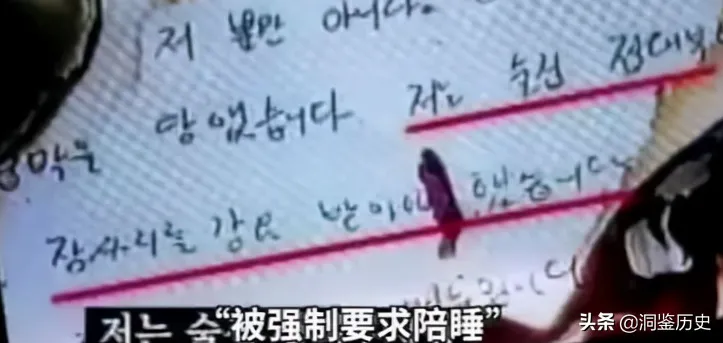 저 뿐만 아니다.
당했습니다. 저는 술접 접대부
잠자리를 강요 받아야 했습니다.
저는 술
“被强制要求陪睡”
头条 @洞鉴历史